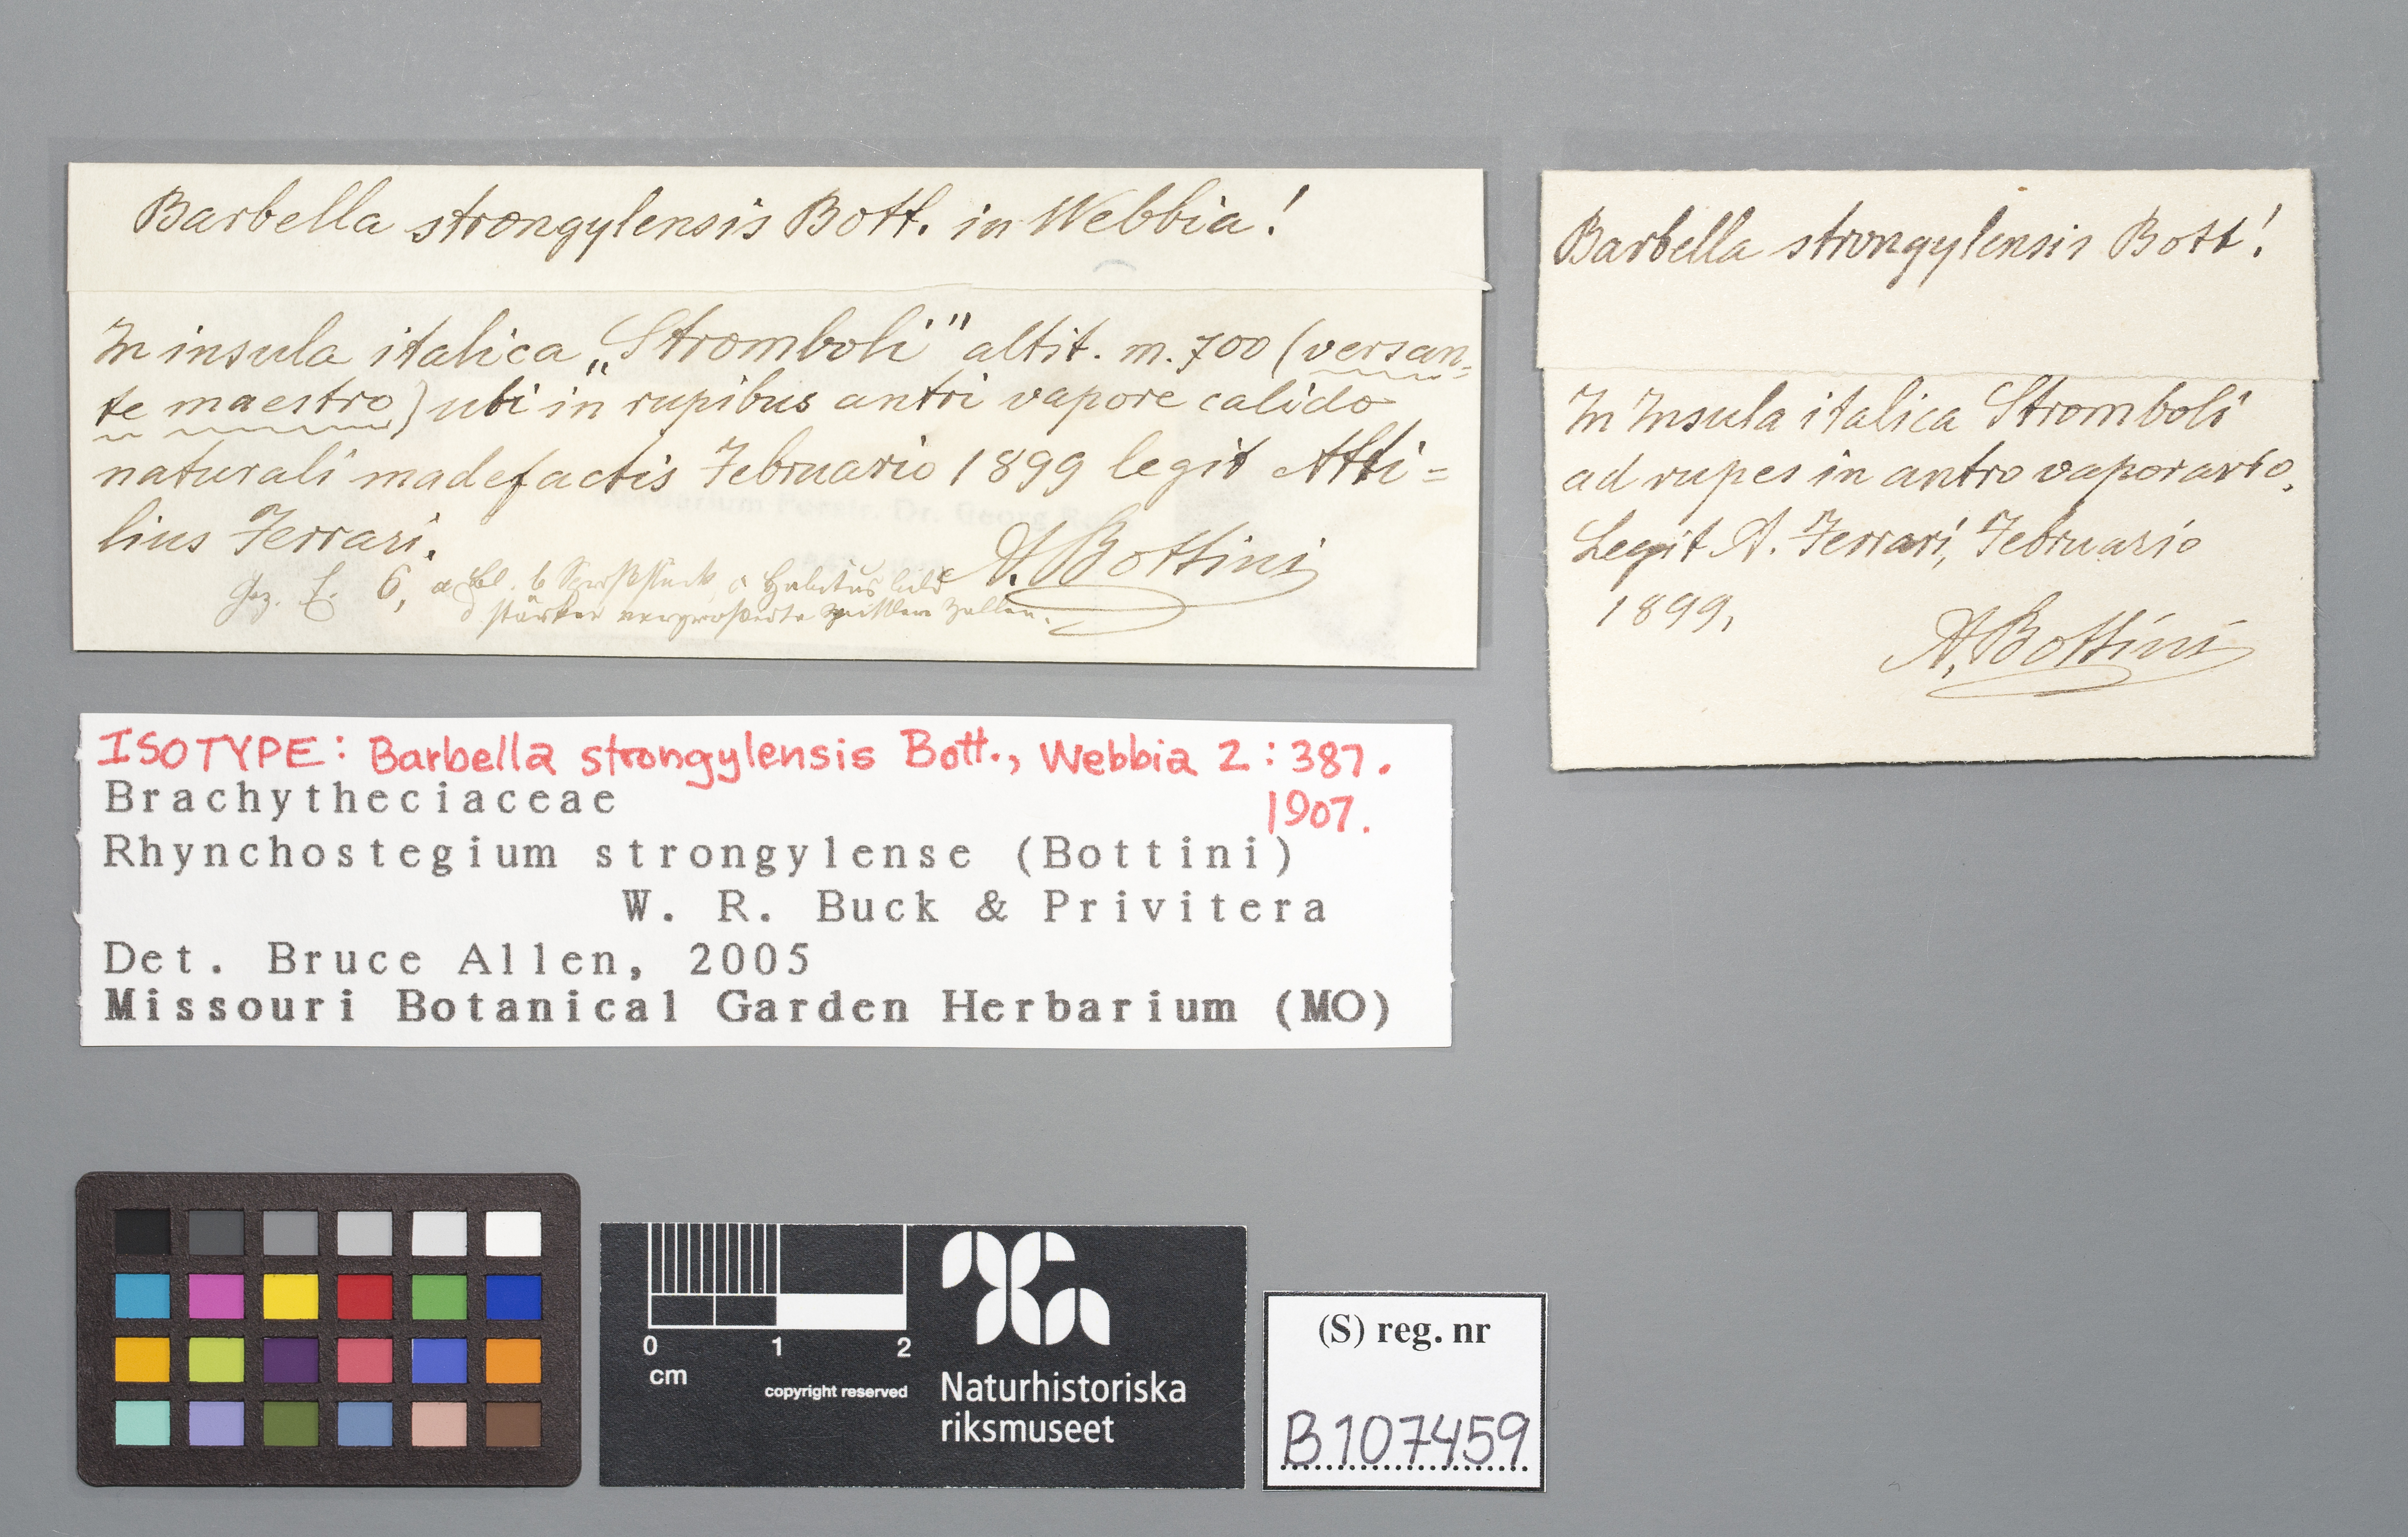 Barbella strongylensis Bott. in Webbia!
In insula italica „Stromboli" altit. m. 700 (versan-
te maestro) ubi in rupibus antri vapore calido
naturali madefactis Februario 1899 legit Atti=
lius Ferrari.
A. Bottini
Gez. f. 6, a b c Habitusbild
d stärker vergrößerte Zellen.
Barbella strongylensis Bott!
In Insula italica Stromboli
ad rupes in antro vaporario.
Legit A. Ferrari, Februario
1899.
A. Bottini
ISOTYPE: Barbella strongylensis Bott., Webbia 2: 387.
1907.
Brachytheciaceae
Rhynchostegium strongylense (Bottini)
W. R. Buck & Privitera
Det. Bruce Allen, 2005
Missouri Botanical Garden Herbarium (MO)
0 1 2
cm
copyright reserved
Naturhistoriska
riksmuseet
(S) reg. nr
B107459